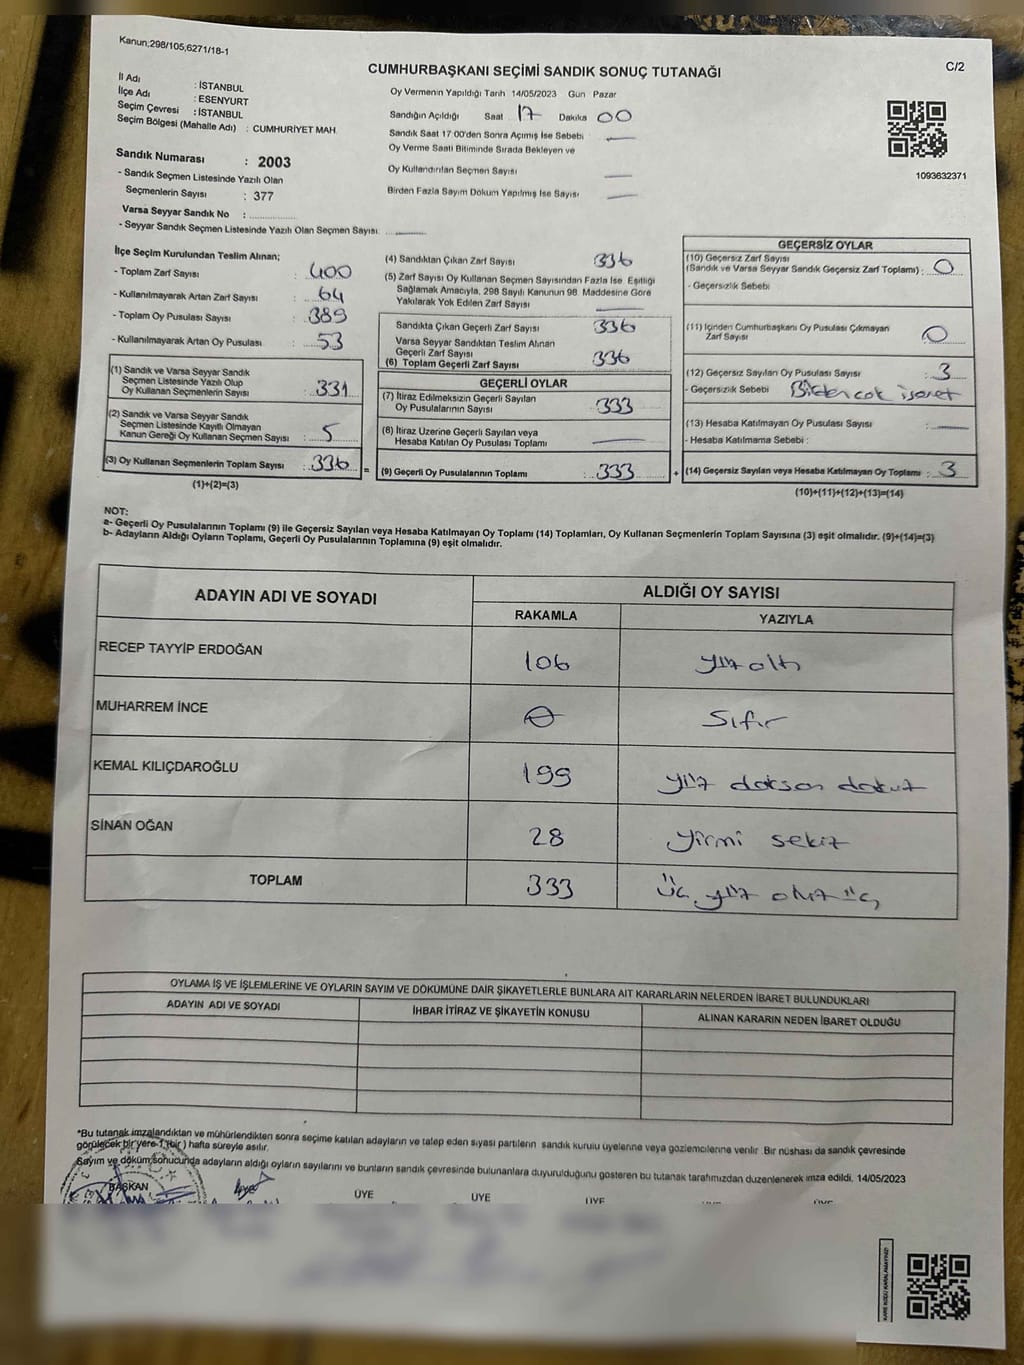 Kanun;298/105,6271/18-1
C/2
CUMHURBAŞKANI SEÇİMİ SANDIK SONUÇ TUTANAĞI
İl Adı : İSTANBUL
İlçe Adı : ESENYURT
Seçim Çevresi : İSTANBUL
Seçim Bölgesi (Mahalle Adı) : CUMHURİYET MAH.
Oy Vermenin Yapıldığı Tarih 14/05/2023 Gün Pazar
Sandığın Açıldığı Saat 17 Dakika 00
Sandık Saat 17 00'den Sonra Açımış İse Sebebi
Oy Verme Saati Bitiminde Sırada Bekleyen ve
Oy Kullandırılan Seçmen Sayısı
Birden Fazla Sayım Döküm Yapılmış İse Sayısı
1093632371
Sandık Numarası : 2003
- Sandık Seçmen Listesinde Yazılı Olan
Seçmenlerin Sayısı : 377
Varsa Seyyar Sandık No :
- Seyyar Sandık Seçmen Listesinde Yazılı Olan Seçmen Sayısı:
İlçe Seçim Kurulundan Teslim Alınan;
- Toplam Zarf Sayısı : 400
- Kullanılmayarak Artan Zarf Sayısı : 64
- Toplam Oy Pusulası Sayısı : 389
- Kullanılmayarak Artan Oy Pusulası : 53
(1) Sandık ve Varsa Seyyar Sandık
Seçmen Listesinde Yazılı Olup
Oy Kullanan Seçmenlerin Sayısı : 331
(2) Sandık ve Varsa Seyyar Sandık
Seçmen Listesinde Kayıtlı Olmayan
Kanun Gereği Oy Kullanan Seçmen Sayısı : 5
(3) Oy Kullanan Seçmenlerin Toplam Sayısı : 336 =
(1)+(2)=(3)
(4) Sandıktan Çıkan Zarf Sayısı 336
(5) Zarf Sayısı Oy Kullanan Seçmen Sayısından Fazla İse, Eşitliği
Sağlamak Amacıyla, 298 Sayılı Kanunun 98. Maddesine Göre
Yakılarak Yok Edilen Zarf Sayısı
Sandıkta Çıkan Geçerli Zarf Sayısı 336
Varsa Seyyar Sandıktan Teslim Alınan
Geçerli Zarf Sayısı
(6) Toplam Geçerli Zarf Sayısı 336
GEÇERLİ OYLAR
(7) İtiraz Edilmeksizin Geçerli Sayılan
Oy Pusulalarının Sayısı : 333
(8) İtiraz Üzerine Geçerli Sayılan veya
Hesaba Katılan Oy Pusulası Toplamı
(9) Geçerli Oy Pusulalarının Toplamı : 333 +
GEÇERSİZ OYLAR
(10) Geçersiz Zarf Sayısı
(Sandık ve Varsa Seyyar Sandık Geçersiz Zarf Toplamı) : 0
- Geçersizlik Sebebi
(11) İçinden Cumhurbaşkanı Oy Pusulası Çıkmayan
Zarf Sayısı 0
(12) Geçersiz Sayılan Oy Pusulası Sayısı : 3
- Geçersizlik Sebebi : Birden çok işaret
(13) Hesaba Katılmayan Oy Pusulası Sayısı :
- Hesaba Katılmama Sebebi :
(14) Geçersiz Sayılan veya Hesaba Katılmayan Oy Toplamı : 3
(10)+(11)+(12)+(13)=(14)
NOT:
a- Geçerli Oy Pusulalarının Toplamı (9) ile Geçersiz Sayılan veya Hesaba Katılmayan Oy Toplamı (14) Toplamları, Oy Kullanan Seçmenlerin Toplam Sayısına (3) eşit olmalıdır. (9)+(14)=(3)
b- Adayların Aldığı Oyların Toplamı, Geçerli Oy Pusulalarının Toplamına (9) eşit olmalıdır.
ADAYIN ADI VE SOYADI ALDIĞI OY SAYISI
RAKAMLA YAZIYLA
RECEP TAYYİP ERDOĞAN 106 yüz altı
MUHARREM İNCE 0 Sıfır
KEMAL KILIÇDAROĞLU 199 yüz doksan dokuz
SİNAN OĞAN 28 yirmi sekiz
TOPLAM 333 üç yüz otuz üç
OYLAMA İŞ VE İŞLEMLERİNE VE OYLARIN SAYIM VE DÖKÜMÜNE DAİR ŞİKAYETLERLE BUNLARA AİT KARARLARIN NELERDEN İBARET BULUNDUKLARI
ADAYIN ADI VE SOYADI İHBAR İTİRAZ VE ŞİKAYETİN KONUSU ALINAN KARARIN NEDEN İBARET OLDUĞU
*Bu tutanak imzalandıktan ve mühürlendikten sonra seçime katılan adayların ve talep eden siyasi partilerin sandık kurulu üyelerine veya gözlemcilerine verilir. Bir nüshası da sandık çevresinde
görülecek bir yere 1 (bir) hafta süreyle asılır.
Sayım ve döküm sonucunda adayların aldığı oyların sayılarını ve bunların sandık çevresinde bulunanlara duyurulduğunu gösteren bu tutanak tarafımızdan düzenlenerek imza edildi. 14/05/2023
BAŞKAN ÜYE ÜYE ÜYE